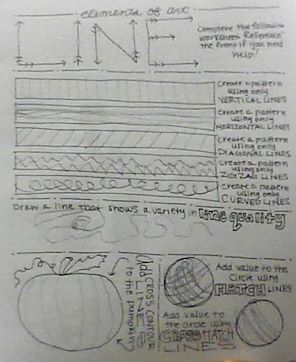 elements of art
LINE
Complete the following
worksheet. Reference
the front if you need
help!
Create a pattern
using only
VERTICAL LINES
Create a pattern
using only
HORIZONTAL LINES
Create a pattern
using only
DIAGONAL LINES
Create a pattern
using only
ZIGZAG LINES
Create a pattern
using only
CURVED LINES
Draw a line that shows a variety in line quality
Add CROSS CONTOUR
LINES
to the pumpkin
Add value to the
circle using
HATCH
LINES
Add value to
the circle using
CROSSHATCH
LINES